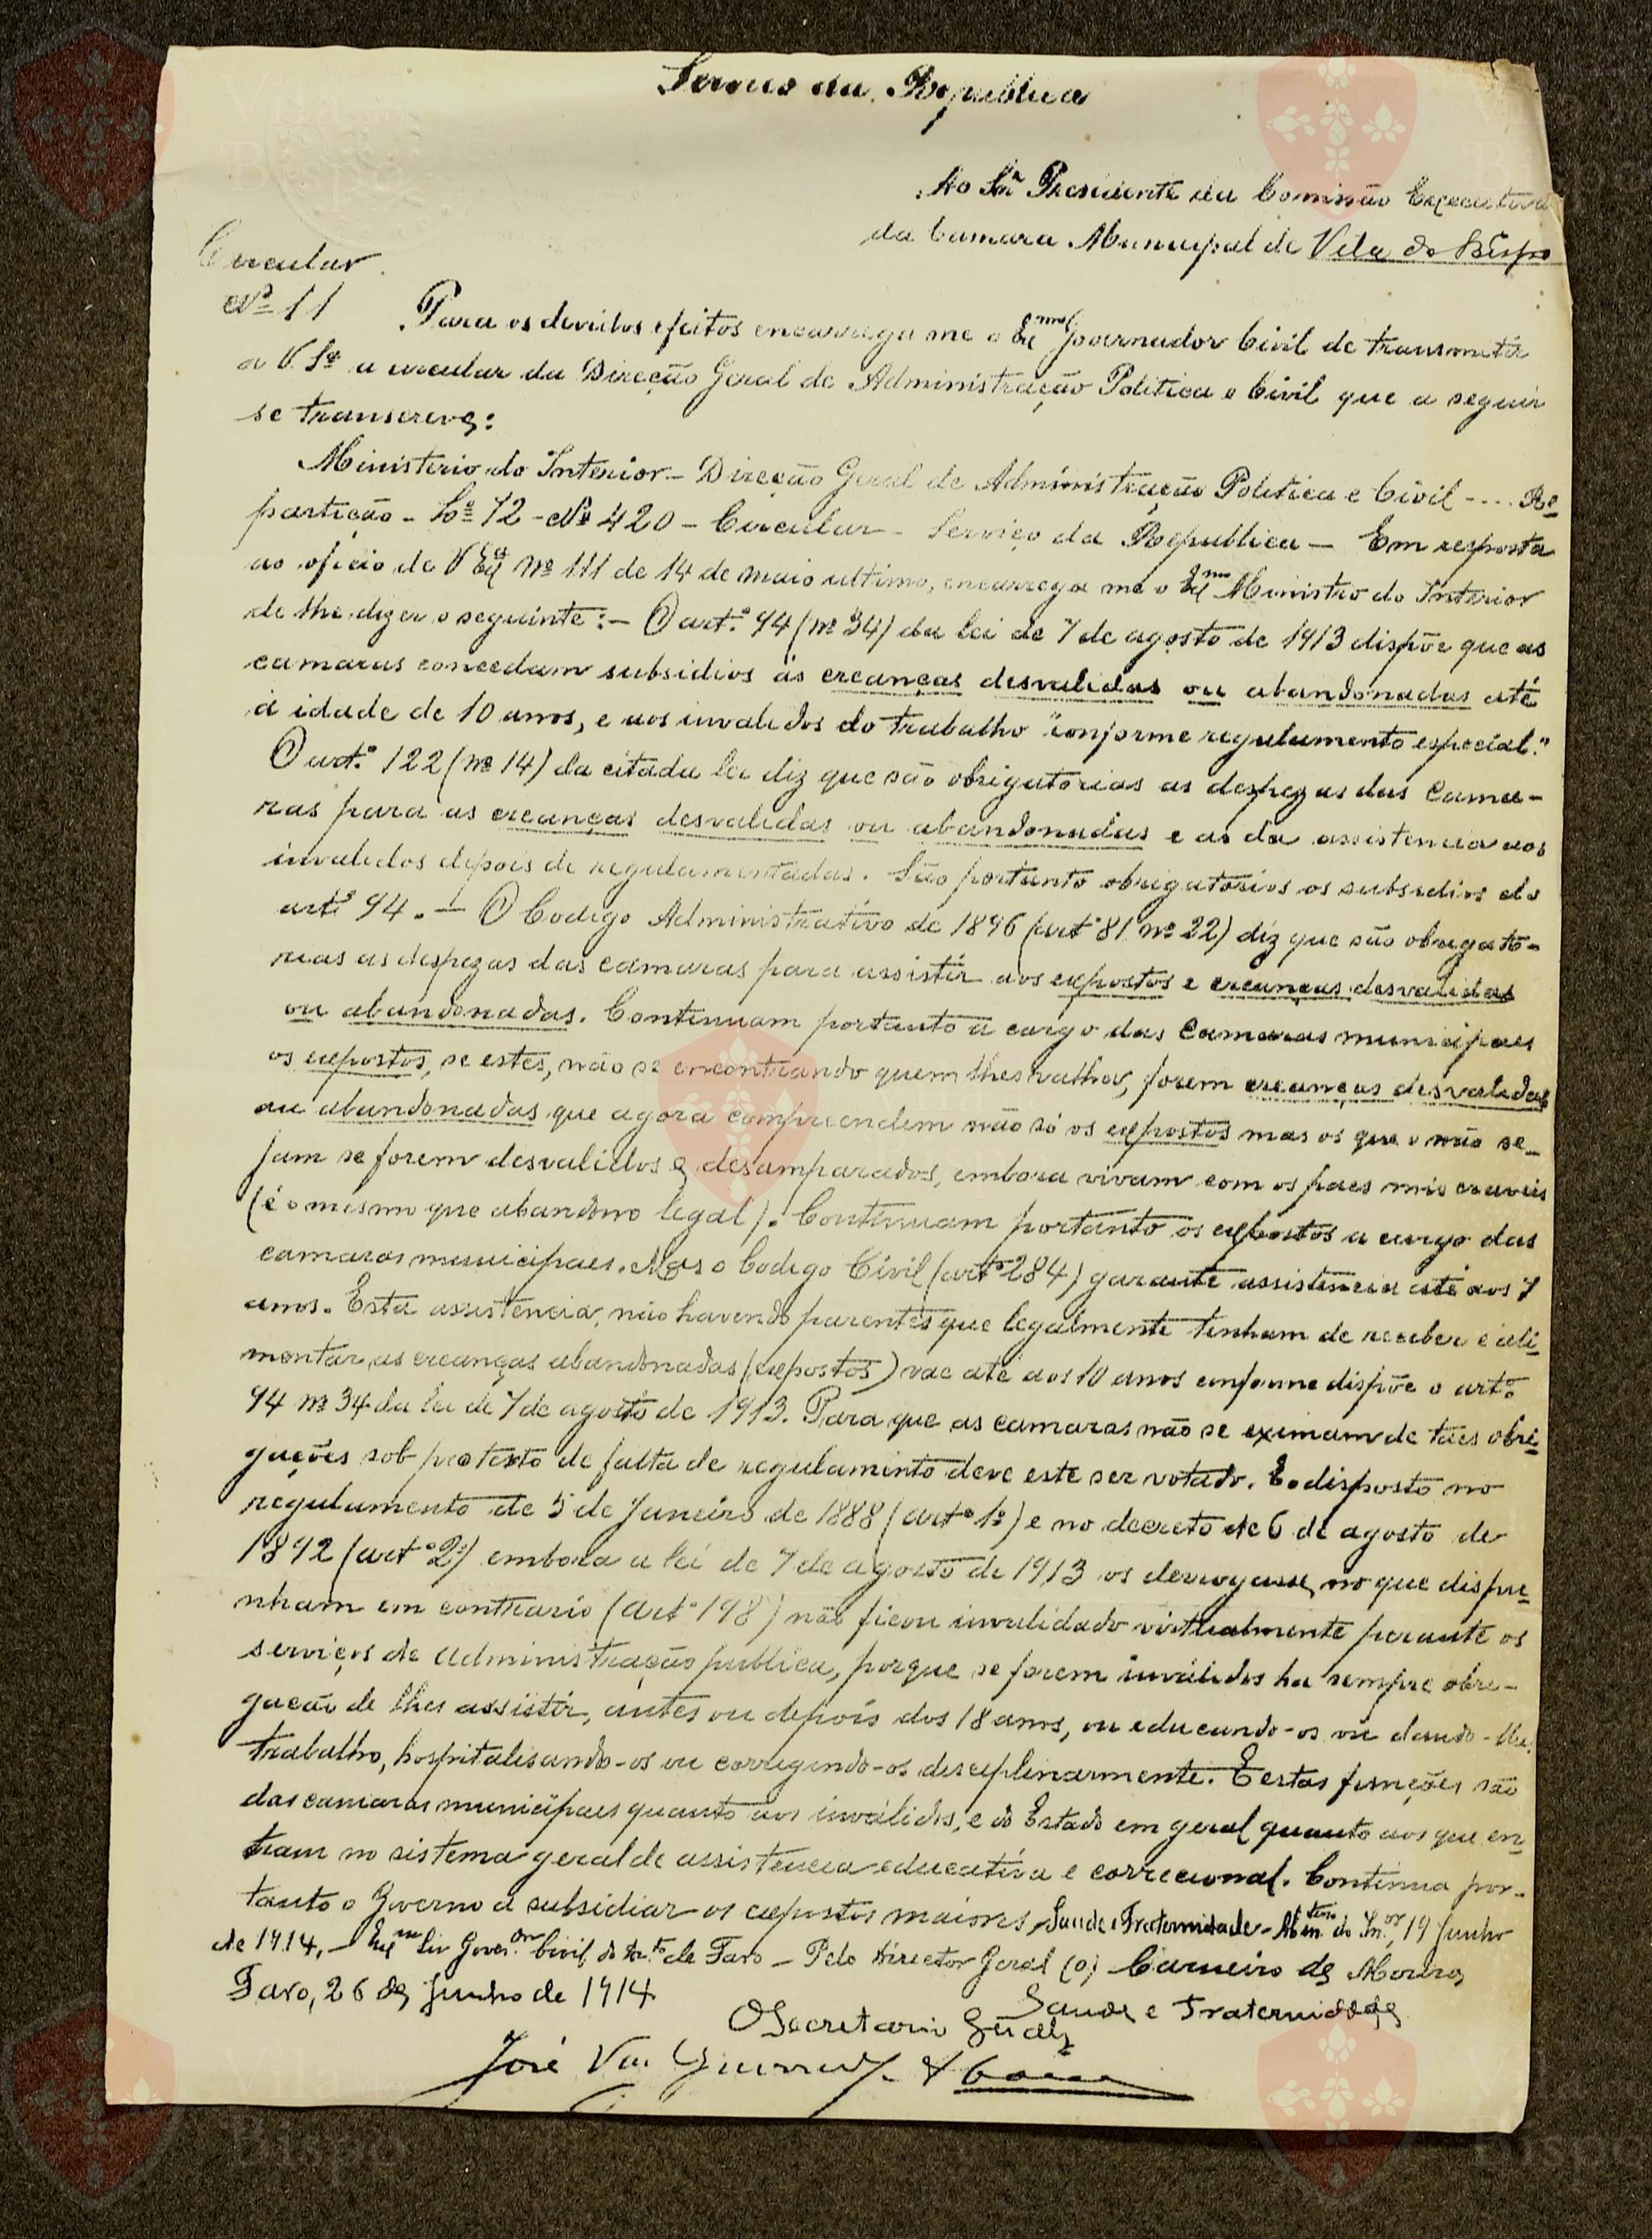 Serviço da Republica
Ao Snr Presidente da Comissão Executiva
da Camara Municipal de Vila do Bispo
Circular
Nº 11 Para os devidos efeitos encarrega me o Exmo Governador Civil de transmetir
a V. Sª a circular da Direção Geral de Administração Politica e Civil que a seguir
se transcreve:
Ministerio do Interior - Direcção Geral de Administração Politica e Civil - ... Re
partição - Lº 12 - Nº 420 - Circular - Serviço da Republica - Em resposta
ao oficio de V Exª Nº 111 de 14 de maio ultimo, encarrega me o Exmo Ministro do Interior
de lhe dizer o seguinte: - O artº 94 (nº 34) da lei de 7 de agosto de 1913 dispõe que as
camaras concedam subsidios ás creanças desvalidas ou abandonadas até
á idade de 10 anos, e aos invalidos do trabalho "conforme regulamento especial."
O artº 122 (nº 14) da citada lei diz que são obrigatorias as despezas das Cama-
ras para as creanças desvalidas ou abandonadas e as da assistencia aos
invalidos depois de regulamentadas. São portanto obrigatorios os subsidios do
artº 94. - O Codigo Administrativo de 1896 (artº 81 nº 22) diz que são obrigató-
rias as despezas das camaras para assistir aos expostos e creanças desvalidas
ou abandonadas. Continuam portanto a cargo das Camaras municipaes
os expostos, se estes, não se encontrando quem lhes valha, forem creanças desvalidas
ou abandonadas que agora comprendem não só os expostos mas os que o não se-
jam se forem desvalidos e desamparados, embora vivam com os paes miseraveis
(é o mesmo que abandono legal). Continuam portanto os expostos a cargo das
camaras municipaes. Mas o Codigo Civil (artº 284) garante assistencia até aos 7
anos. Esta assistencia, não havendo parentes que legalmente tenham de receber e ali-
mentar as creanças abandonadas (expostos) vae até aos 10 anos conforme dispõe o artº
94 nº 34 da lei de 7 de agosto de 1913. Para que as camaras não se eximam de taes obri-
gações sob pretexto de falta de regulamento deve este ser votado. E o disposto no
regulamento de 5 de Janeiro de 1888 (artº 1º) e no decreto de 6 de agosto de
1892 (artº 2º) embora a lei de 7 de agosto de 1913 os derrogasse, no que dispu-
nham em contrario (artº 198) não ficou invalidado virtualmente perante os
serviços de administração publica, porque se forem inválidos ha sempre obri-
gação de lhes assistir, antes ou depois dos 18 anos, ou educando-os ou dando-lhe
trabalho, hospitalisando-os ou corrigindo-os desceplinarmente. E estas funções são
das camaras municipaes quanto aos inválidos, e do Estado em geral quanto aos que en-
tram no sistema geral de assistencia educativa e correcional. Continua por-
tanto o Governo a subsidiar os expostos maiores. Saude e Fraternidade - Min. do Inor, 19 Junho
de 1914, - Exmo Snr Goveror Civil do Dto de Faro - Pelo Director Geral (a) Carneiro de Moura
Faro, 26 de Junho de 1914
Saude e Fraternidade
O Secretario Geral
José